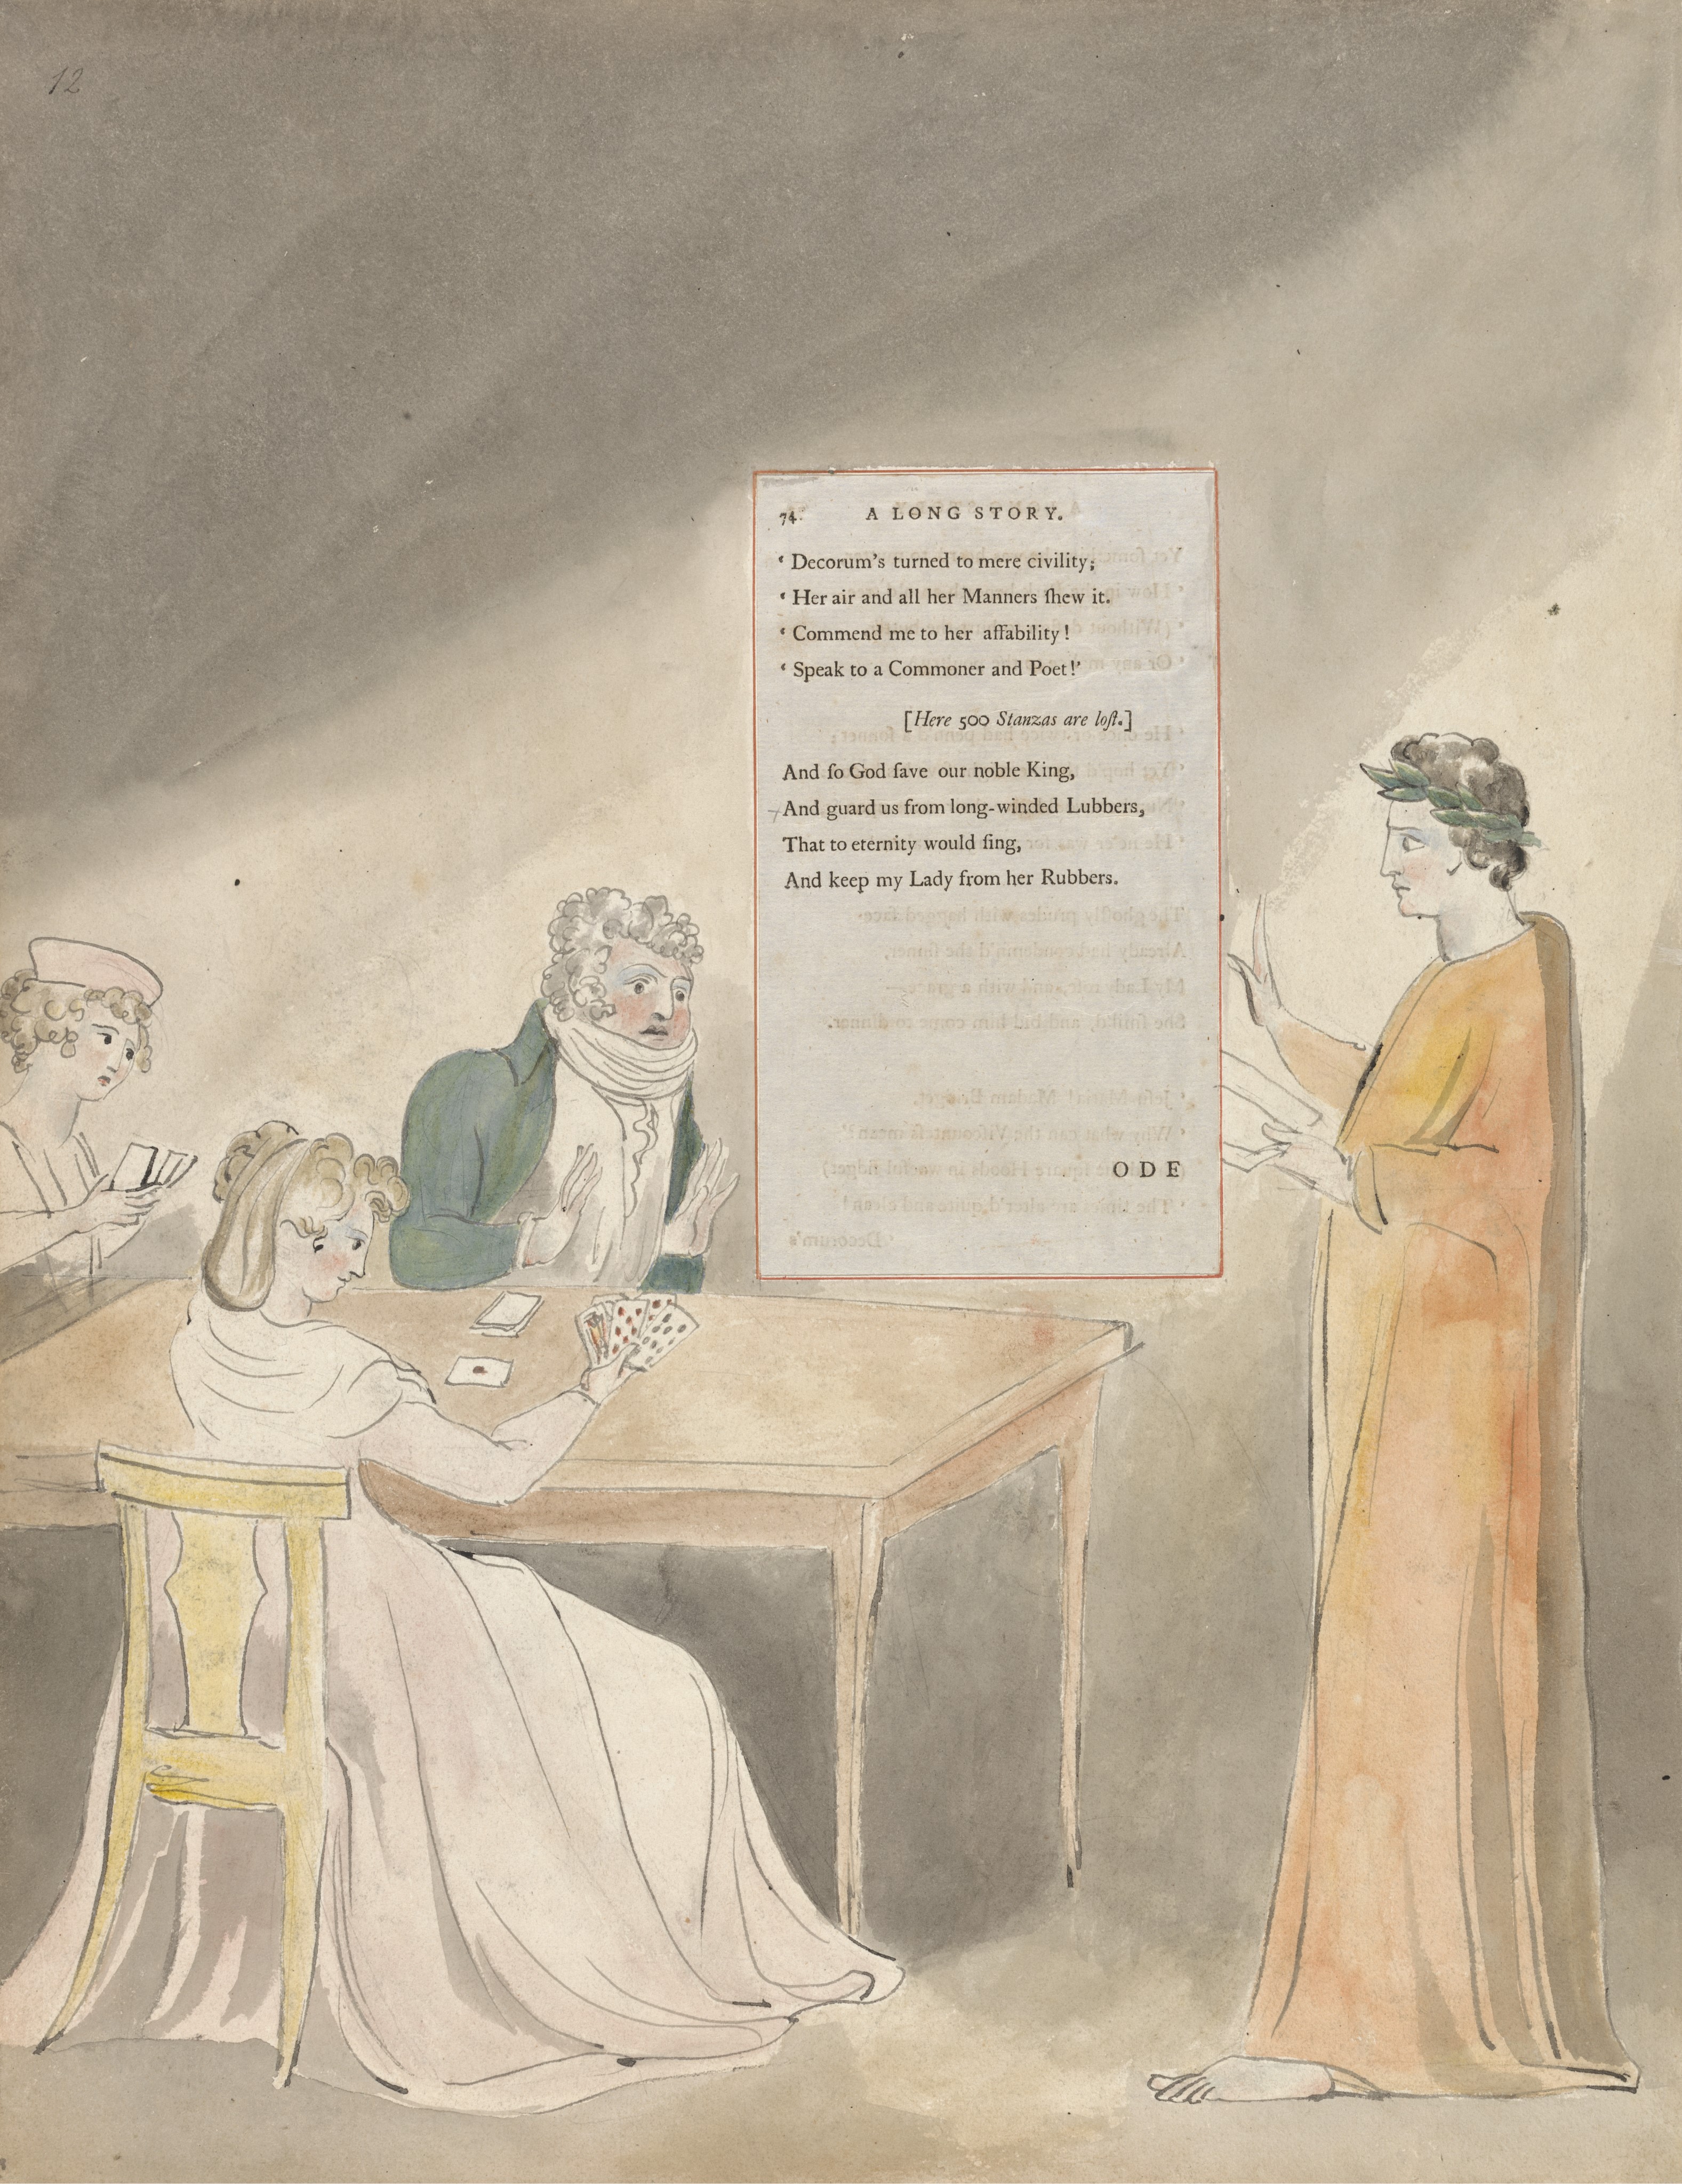 12
74 A LONG STORY.
‘ Decorum's turned to mere civility;
‘ Her air and all her Manners ſhew it.
‘ Commend me to her affability!
‘ Speak to a Commoner and Poet!’
[Here 500 Stanzas are loſt.]
And ſo God ſave our noble King,
And guard us from long-winded Lubbers,
That to eternity would ſing,
And keep my Lady from her Rubbers.
ODE